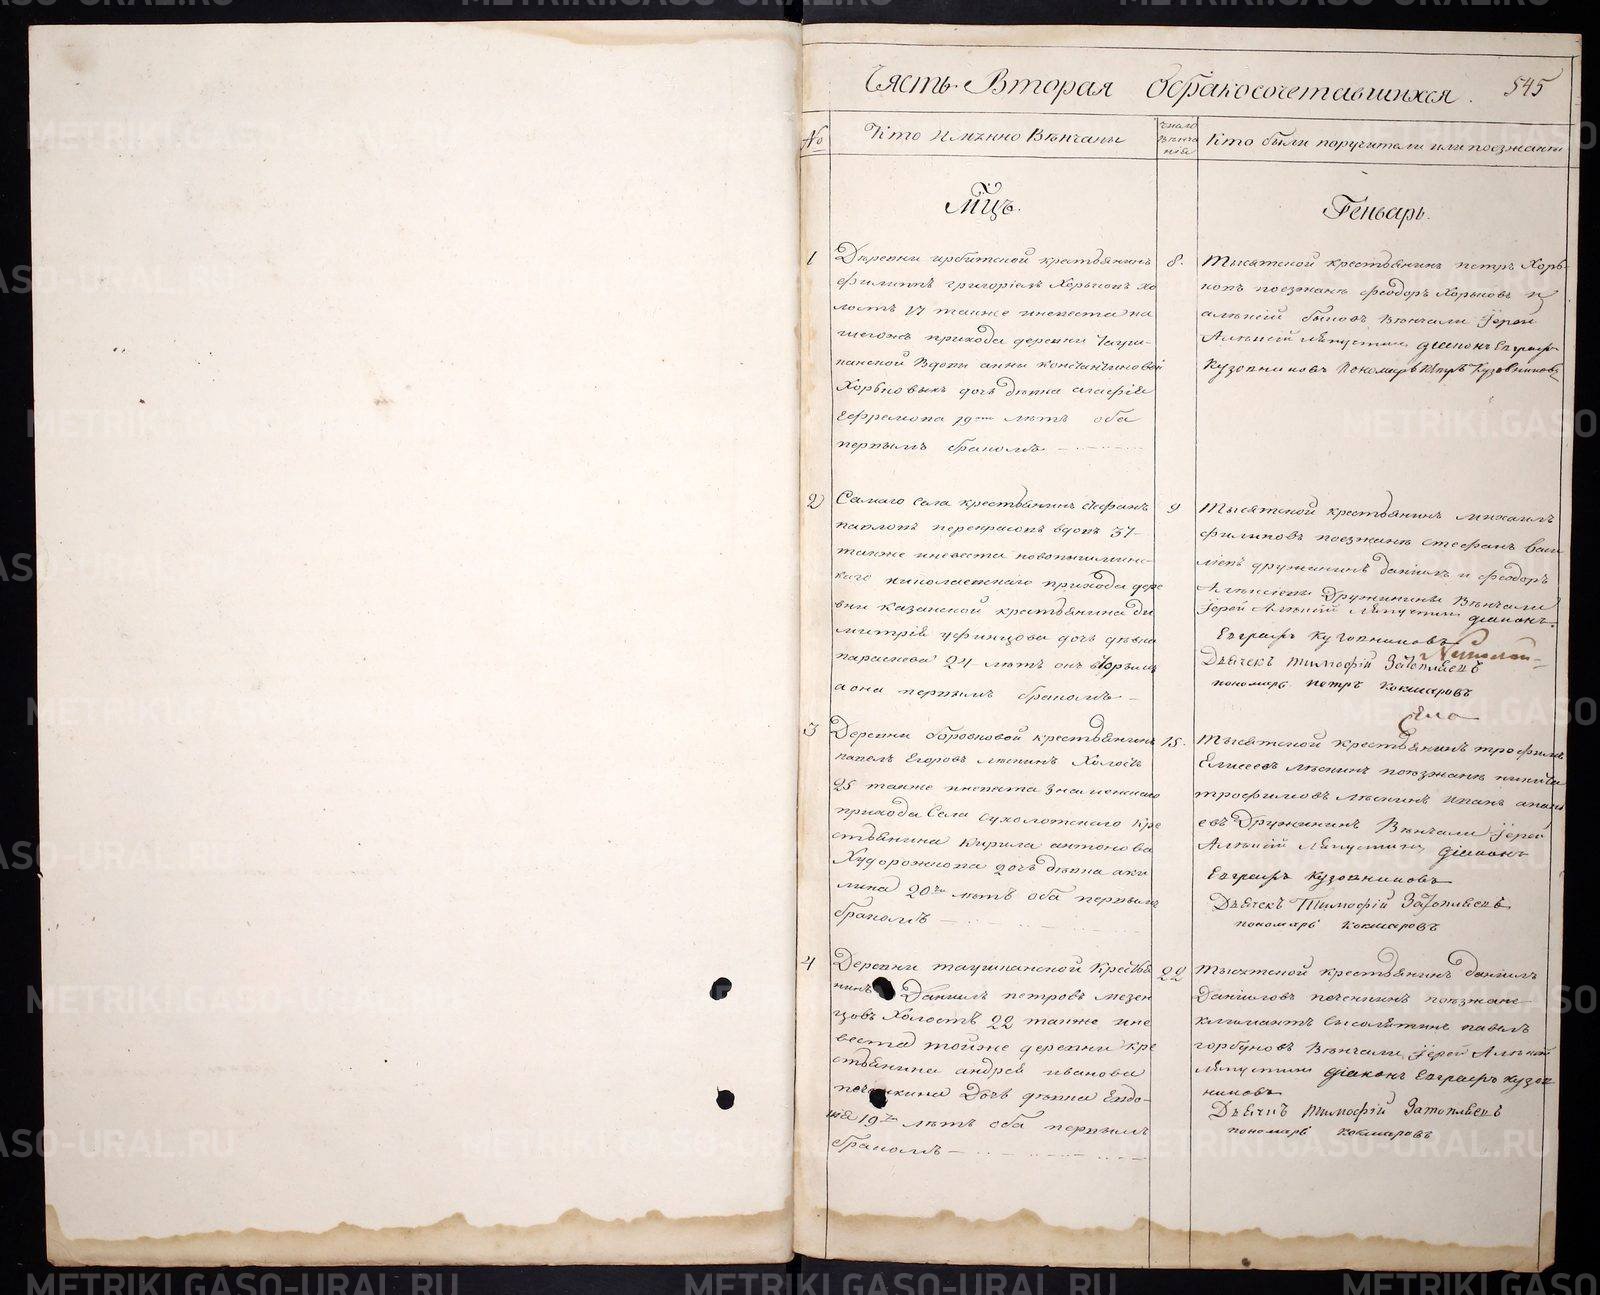 Часть Вторая Обракосочетавшихся. 545
№ Кто имянно Венчаны Число Венча нiя Кто были поручители или поезжаня
Мцъ. Геньварь.
1
Деревни ирбитской крестьянинъ
филиппъ григорiевъ Хорьковъ хо
лостъ 17 также иневеста на
шегожъ прихода деревни Тауш-
канской вдовы анны константиновой
Хорьковыхъ дочь девка агафiя
Ефремова 19 летъ оба
первымъ бракомъ
8.
Тысятской крестьянинъ петръ Хорь
ковъ поезжаня феодоръ Хорьковъ и
алексiй быковъ Венчали Iерей
Алексiй Ляпустинъ дiаконъ Евграфъ
Кузовниковъ Пономарь Петръ Кузовниковъ
2
Самаго села крестьянинъ
павловъ некрасовъ вдовъ 37
также иневеста новопышмин-
скаго николаевскаго прихода дере
вни казанской крестьянина ди
митрiя уфинцова дочь девка
параскева 24 летъ онъ вторымъ
аона первымъ бракомъ
9
Тысятской крестьянинъ михаилъ
филиповъ поезжаня стефанъ васи
лiевъ дружининъ данiилъ и феодоръ
Алексеевы Дружинины Венчали
Iерей Алексiй Ляпустинъ дiаконъ
Евграфъ Кузовниковъ
Дьячекъ Тимофiй Затопляевъ
пономарь петръ Кокшаровъ
3
Деревни боровковой крестьянинъ
павелъ Егоровъ лескинъ Холостъ
25 также иневеста Знаменскаго
прихода Села Сухоложскаго кре
стьянина Кирила антонова
Худорожкова дочь девка аки
лина 20 летъ оба первымъ
бракомъ
15.
Тысятской крестьянинъ трофимъ
Елисеевъ лескинъ поезжаня никита
трофимовъ лескинъ иванъ
евъ Дружининъ Венчали Iерей
Алексiй Ляпустинъ дiаконъ
Евграфъ Кузовниковъ
Дьячекъ Тимофiй Затопляевъ
пономарь Кокшаровъ
4
Деревни таушканской Крестья
нинъ Данiилъ петровъ мезен
цовъ Холостъ 22 также ине
веста тойже деревни кре
стьянина андрея иванова
почекина Дочь девка Евдо-
кiя 19 летъ оба первымъ
бракомъ
22
Тысятской крестьянинъ данiилъ
Данiиловъ почекинъ поезжане
климантъ сысолятинъ павелъ
горбуновъ Венчали Iерей Алексiй
Ляпустинъ дiаконъ Евграфъ Кузов
никовъ
Дьячикъ Тимофiй Затопляевъ
пономарь Кокшаровъ
METRIKI.GASO-URAL.RU